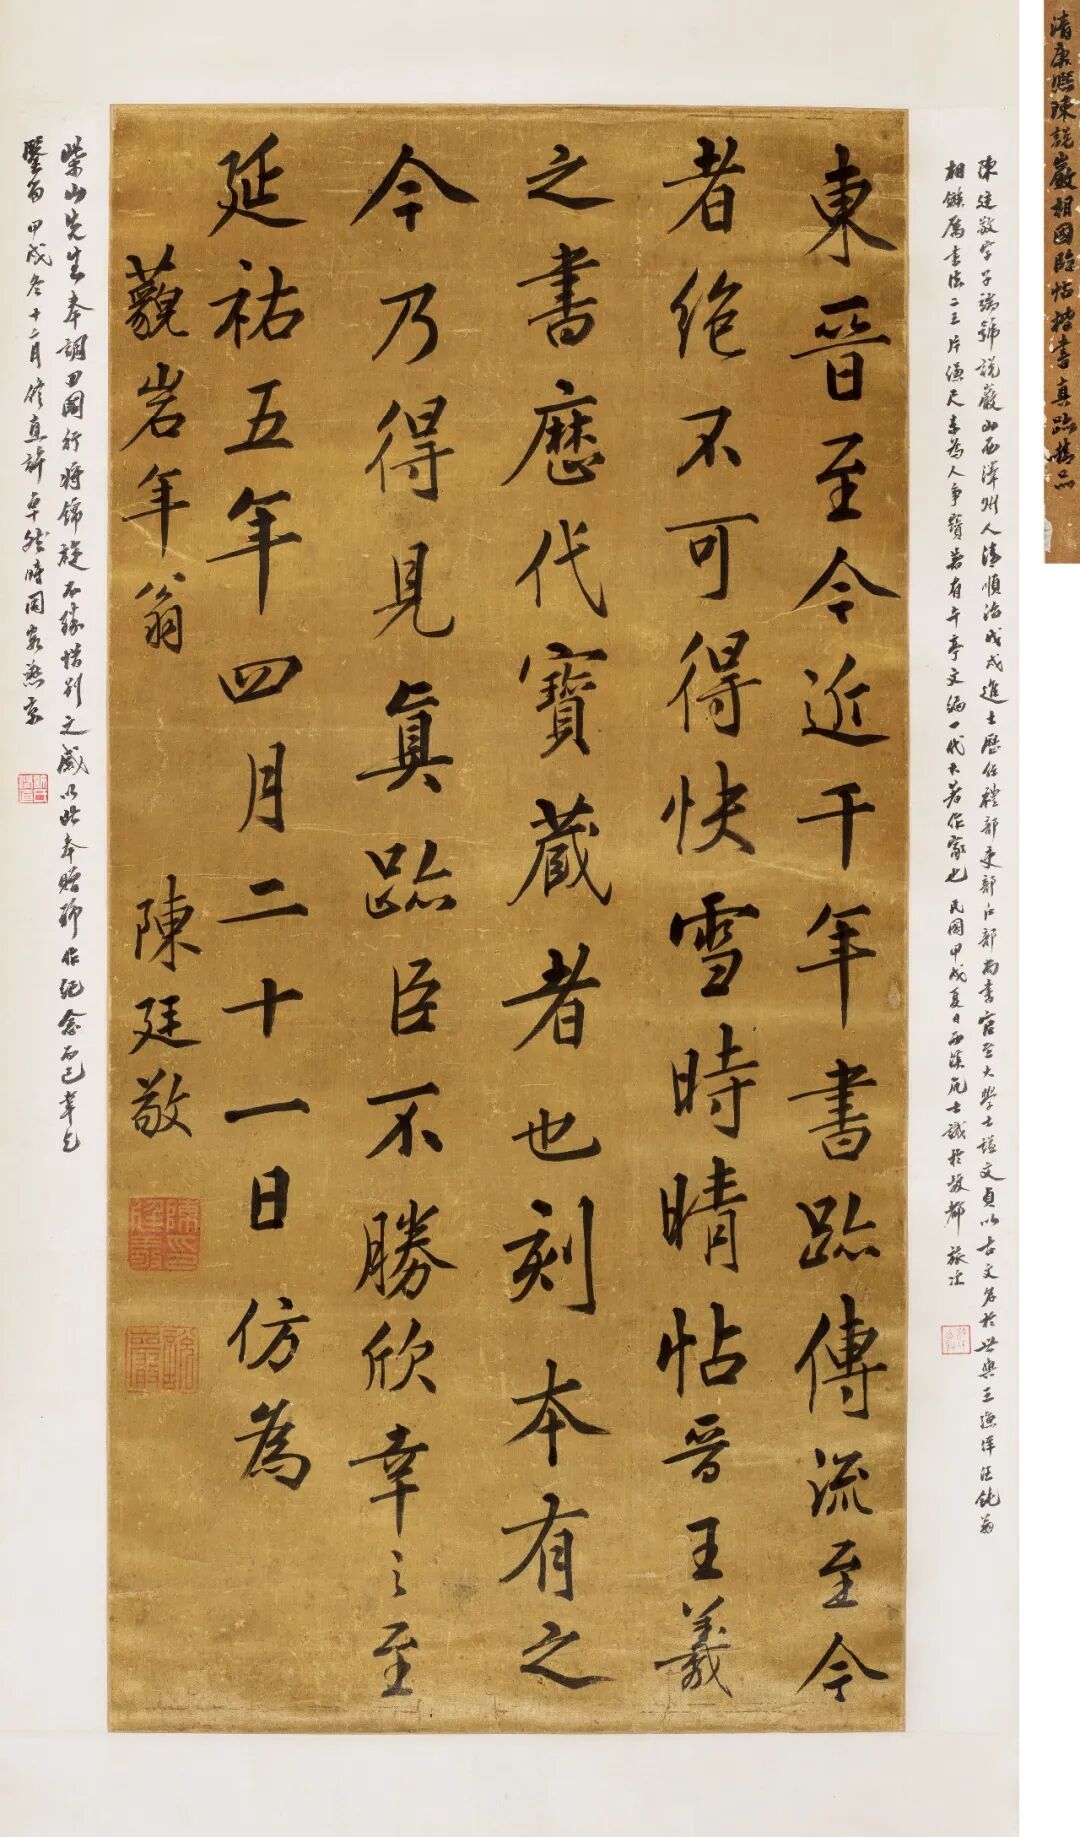 清康熙陳說巖相國臨帖楷書真跡精品
陳廷敬字子端號說巖山西澤州人清順治戊戌進士歷任禮部吏部戶部尚書官至大學士謚文貞以古文名於世與王漁洋汪鈍翁
相鏃厲書法二王片縑尺素為人爭寶著有午亭文編一代大著作家也民國甲戌夏日 識於故都旅次
東晉至今近千年書跡傳流至今
者絶不可得快雪時晴帖晉王羲
之書歷代寶藏者也刻本有之
今乃得見真跡臣不勝欣幸之至
延祐五年四月二十一日仿為
藐岩年翁 陳廷敬
陳廷敬印
說巖
柴山先生奉調回國行將錦旋不勝惜別之感以此奉贈聊作紀念而已幸乞
鑒留 甲戌冬十二月修直許卓然時同客燕京